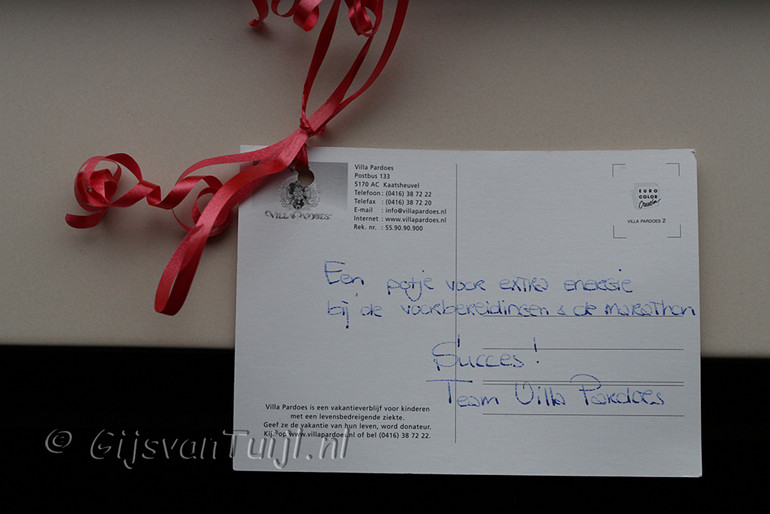 Villa Pardoes
Postbus 133
5170 AC Kaatsheuvel
Telefoon : (0416) 38 72 22
Telefax : (0416) 38 72 20
E-mail : info@villapardoes.nl
Internet : www.villapardoes.nl
Rek. nr. : 55.90.90.900
VILLA PARDOES
EURO
COLOR
Creation
VILLA PARDOES 2
Een potje voor extra energie
bij de voorbereidingen & de marathon
Succes!
Team Villa Pardoes
Villa Pardoes is een vakantieverblijf voor kinderen
met een levensbedreigende ziekte.
Geef ze de vakantie van hun leven, word donateur.
Kijk op www.villapardoes.nl of bel (0416) 38 72 22.
© GijsvanTuijl.nl